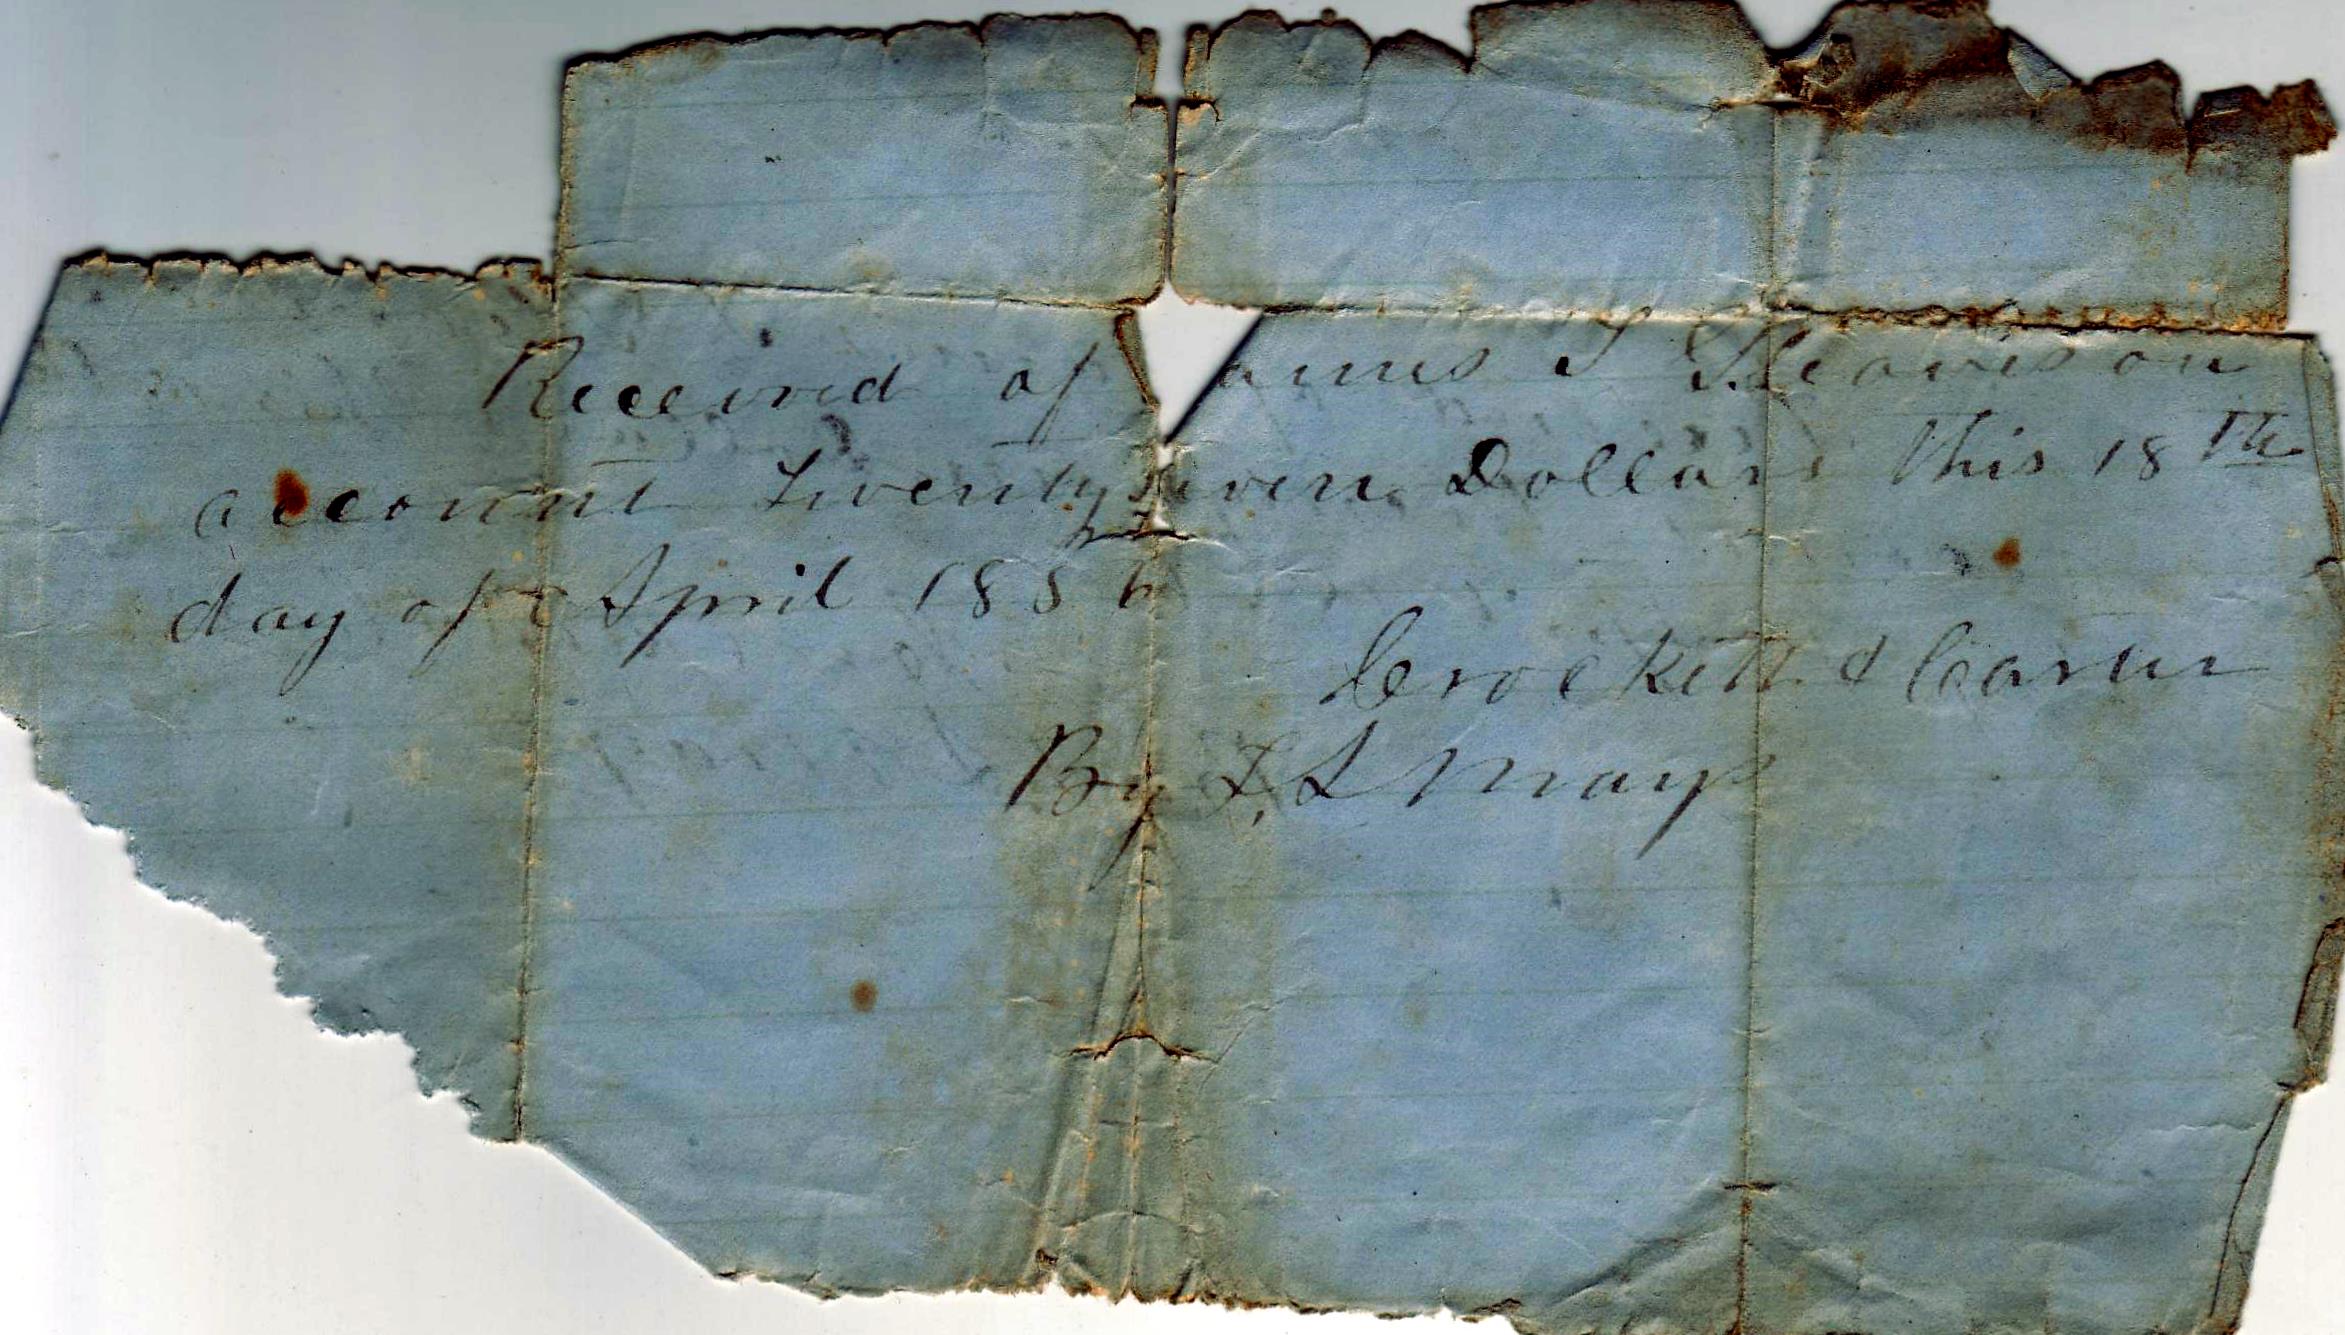 Received of ames S on
account Twenty even Dollars this 18th
day of April 18
Crockett & Carter
By F, S Mays